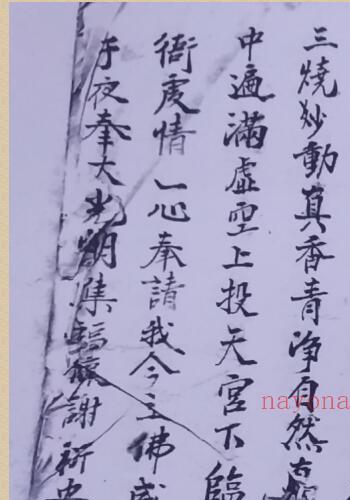 三燒妙動真香青净自然
中遍滿虛空上投天宮下臨
衙虔情一心奉請我今主佛
午夜奉大光朗集福禳謝祈
nayona